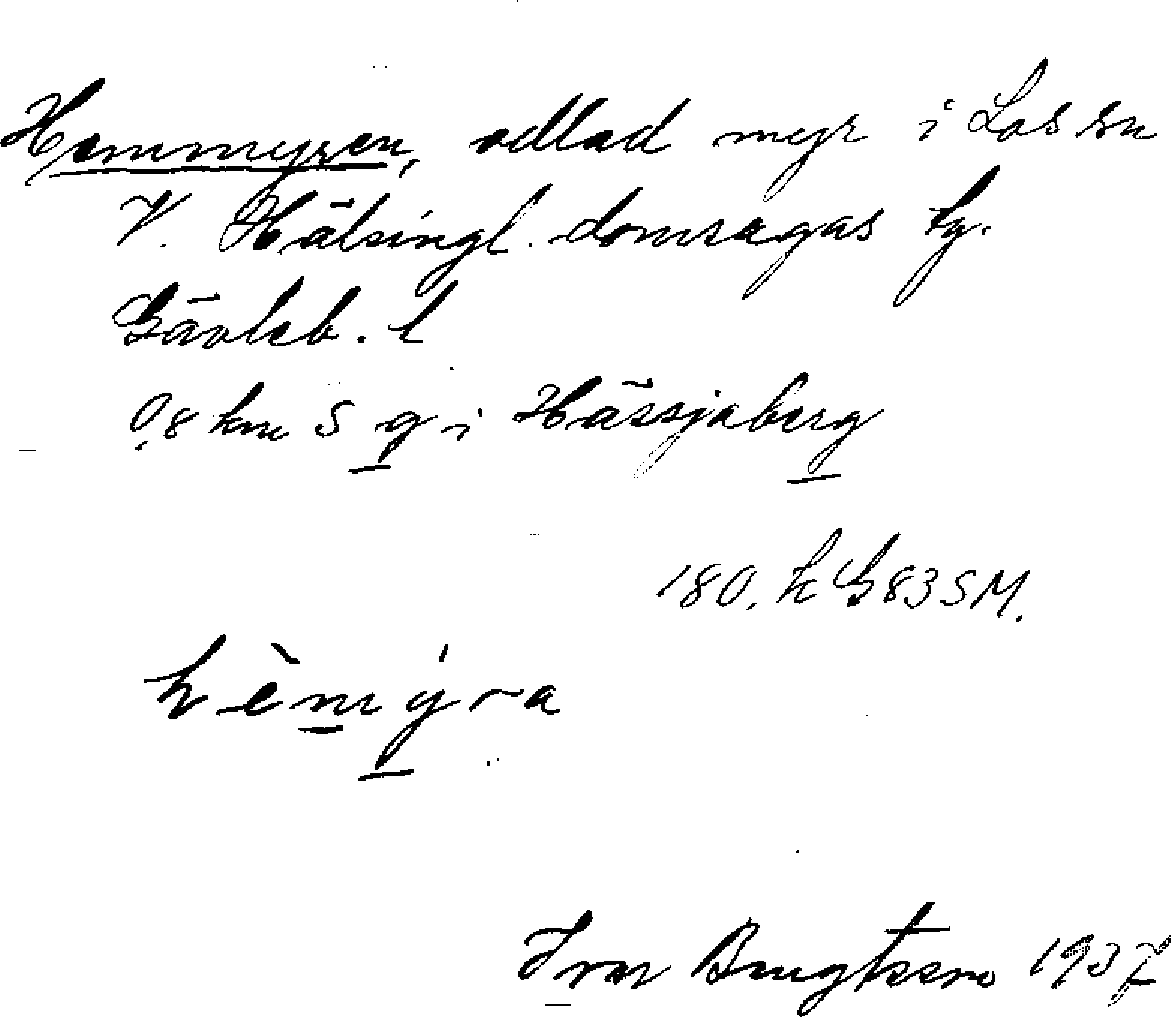 Hemmyren, odlad myr i Los sn
V. Hälsingl. domsagas tg.
Gävleb. l
0,8 km S g i Hässjaberg
180. h G 83 SM.
hèmýra
Ivar Bengtsson 1937